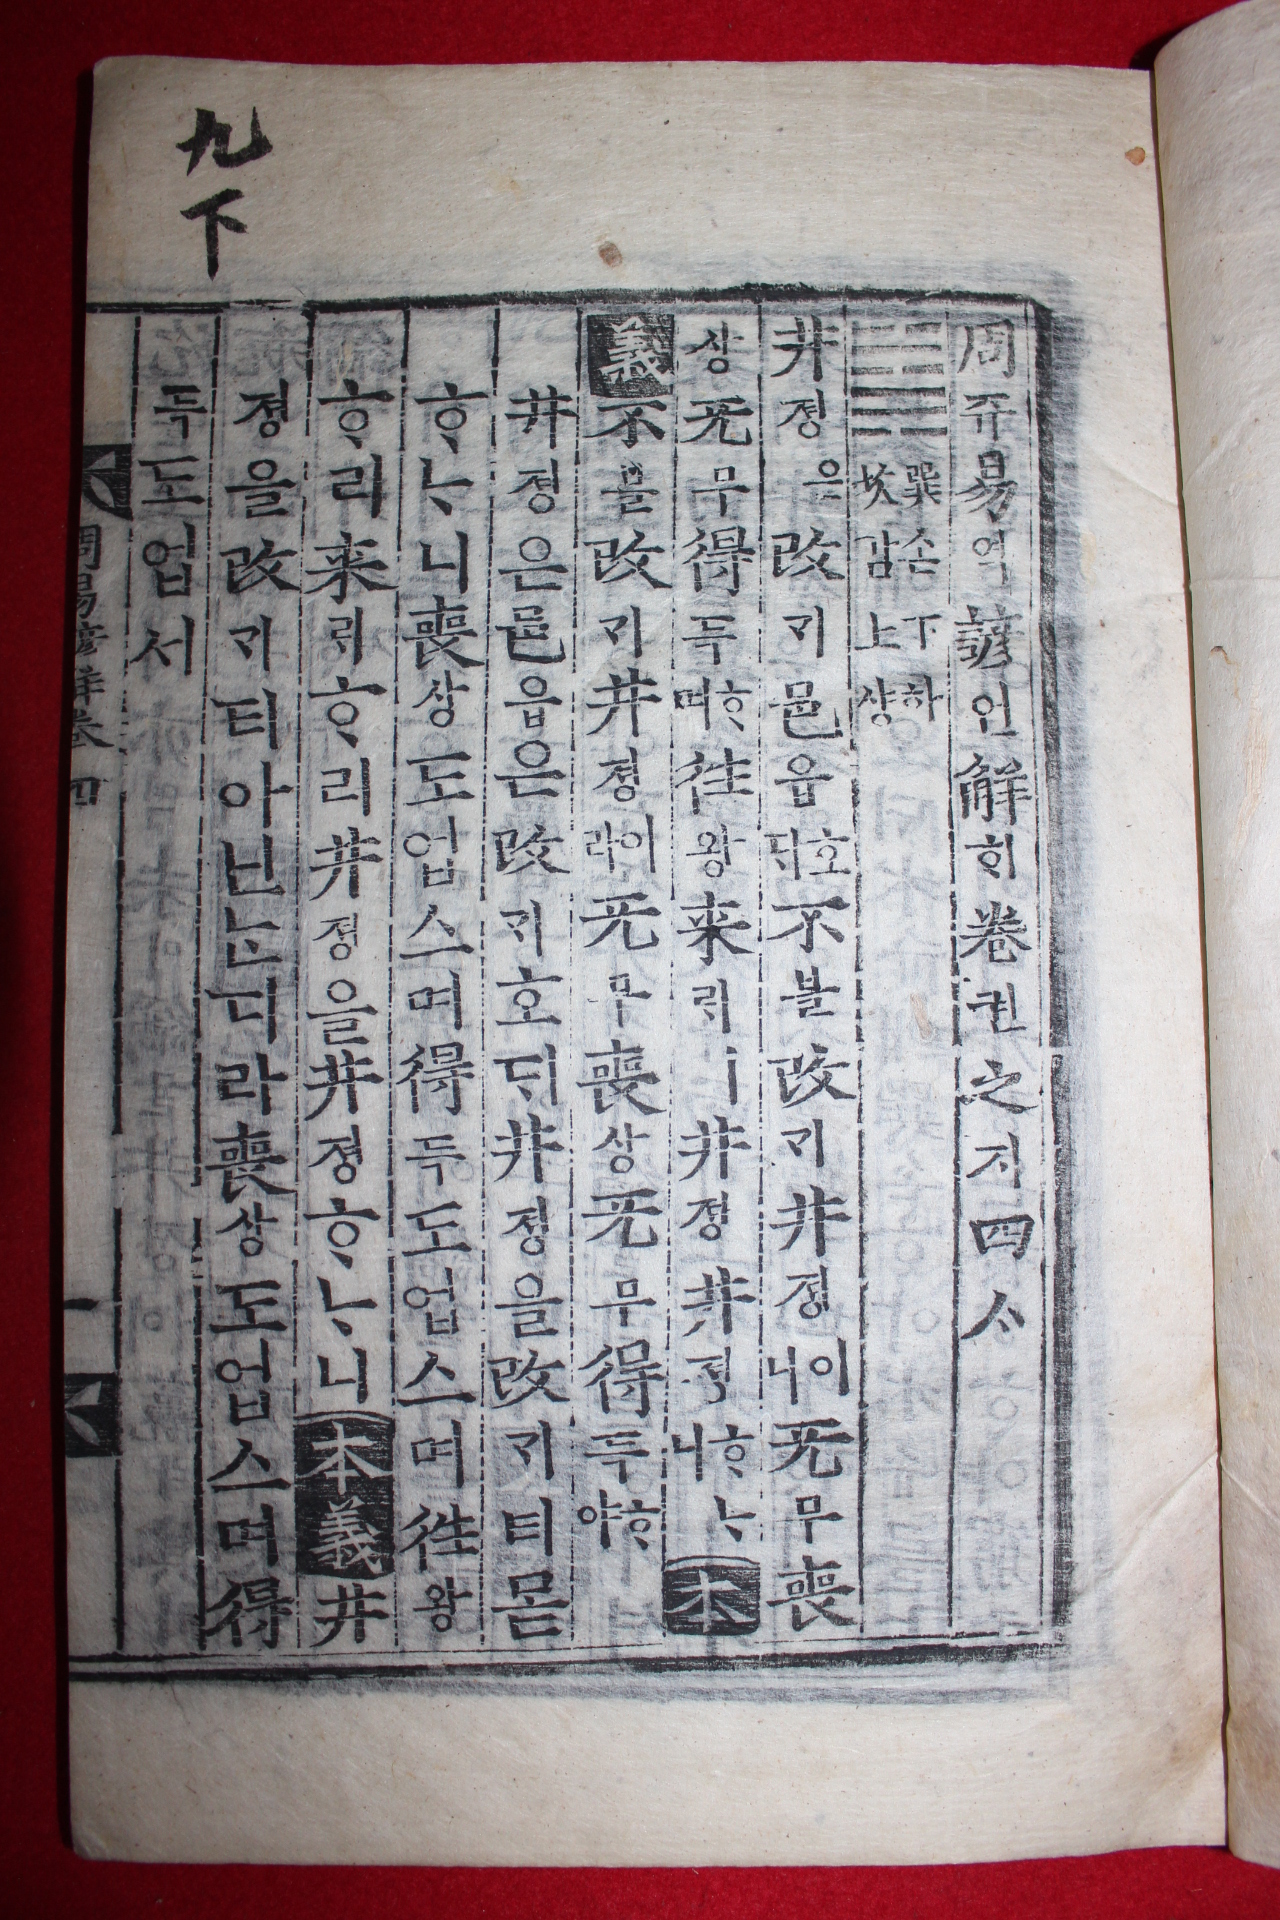 九下
周쥬易역諺언解ᄒᆡ卷권之지四ᄉᆞ
巽손下하坎감上샹
井졍은改ᄀᆡ邑읍호ᄃᆡ不블改ᄀᆡ井졍이니无무喪
상无무得득ᄒᆞ며往왕来ᄅᆡㅣ井졍井졍ᄒᆞᄂᆞ니本
義不블改ᄀᆡ井졍이라无무喪상无무得득ᄒᆞ야
井졍은邑읍은改ᄀᆡ호ᄃᆡ井졍을改ᄀᆡ티몯
ᄒᆞᄂᆞ니喪상도업스며得득도업스며往왕
ᄒᆞ리来ᄅᆡᄒᆞ리井졍을井졍ᄒᆞᄂᆞ니本義井
졍을改ᄀᆡ티아닌ᄂᆞᆫ디라喪상도업스며得
득도업서
周易諺解卷四 一